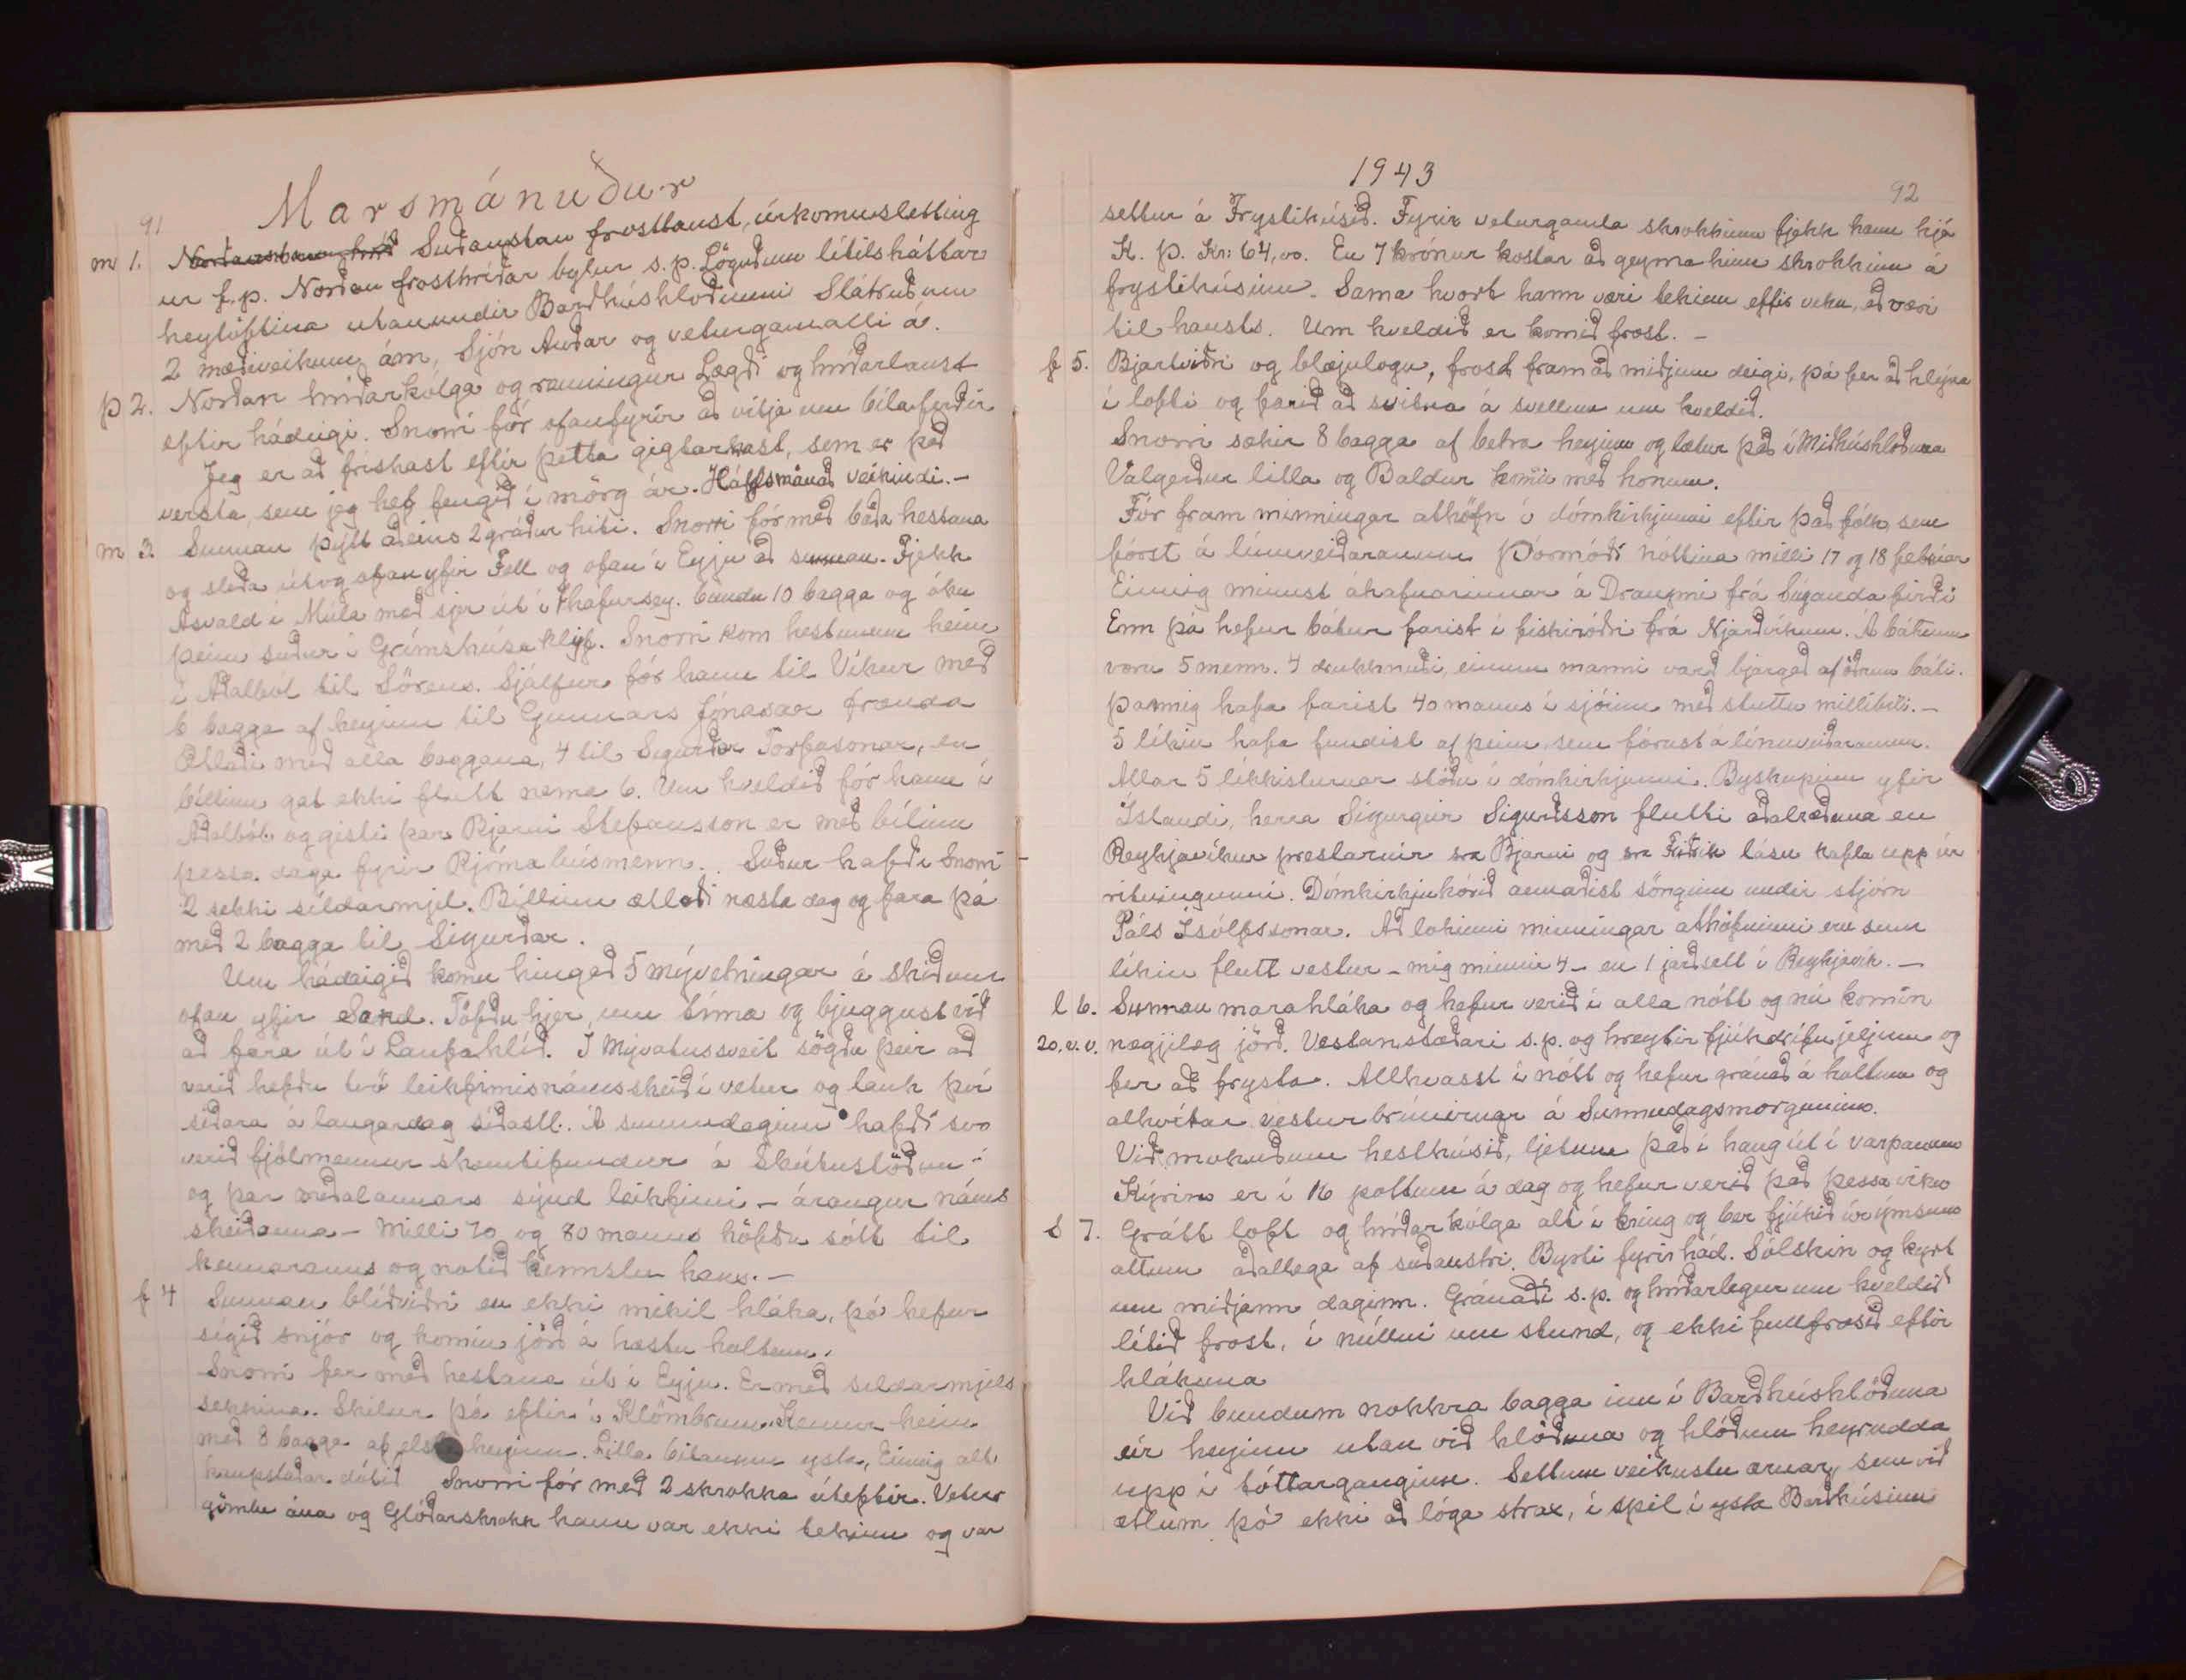 Marsmánuður
91
m 1. Norðaustan hríð Suðaustan frostlaust, úrkomusletting
ur f.p. Norðan frosthríðar bylur s.p. Löguðum lítilsháttar
heytóftina utanundir Barðhúshlöðunni Slátruðum
2 mæðiveikum ám, Sjón Auðar og veturgamalli á.
þ 2. Norðan hríðarkólga og renningur Lægði og hríðarlaust
eftir hádegi. Snorri fór ofanfyrir að vitja um bílaferðir
Jeg er að friskast eftir þetta gigtarkast, sem er það
versta, sem jeg hef fengið í mörg ár. Hálfsmánað veikindi.-
m 3. Sunnan þýtt aðeins 2 gráður hiti. Snorri fór með báða hestana
og sleða út og ofan yfir Fell og ofan í Eyju að sunnan. Fjekk
Asvald í Múla með sjer út í Þhafursey. bundu 10 bagga og óku
þeim suður í Grímshúsa klyf. Snorri kom hestunum heim
í Aðalból til Sörens. Sjálfur fór hann til Víkur með
6 bagga af heyinu til Gunnars Jónasar frænda
Ætlaði með alla baggana, 4 til Sigurðar Torfasonar, en
bíllinn gat ekki flutt nema 6. Um kveldið fór hann í
Aðalból og gisti þar Bjarni Stefansson er með bílinn
þessa daga fyrir Rjómabúsmenn. Suður hafði Snorri
2 sekki síldarmjel. Bíllinn ætlaði næsta dag og fara þá
með 2 bagga til Sigurðar.
Um hádegið komu hingað 5 mývetningar á skíðum
ofan yfir Sand. Töfðu hjer um tíma og bjuggust við
að fara út í Laufahlíð. I Mývatnssveit sögðu þeir að
verið hefðu tvö leikfimisnámsskeið í vetur og lauk því
síðara á laugardag síðastl. Á sunnudaginn hafði svo
verið fjölmennur skemtifundur á Skútustöðum
og þar meðalannars sýnd leikfimi - árangur náms
skeiðanna - Milli 70 og 80 manns höfðu sótt til
kennarans og notið kennslu hans.-
f 4 Sunnan blíðviðri en ekki mikil hláka, þó hefur
sígið snjór og komin jörð á hæstu holtum.
Snorri fer með hestana út í Eyju. Er með síldarmjels
sekkina. Skilur þá eftir í Klömbrum. Kemur heim
með 8 bagga af heyinu. Lilla bitanum ysta, Einnig alt
kaupstaðar dótið Snorri fór með 2 skrokka úteftir. Vetur
gömlu ána og Glóðarskrokk hann var ekki tekinn og var
1943
92
settur á Frystihúsið. Fyrir veturgamla skrokkinn fjekk hann hjá
K. Þ. Kr: 64,00. En 7 krónur kostar að geyma hinn skrokkinn á
frystihúsinu. Sama hvort hann væri tekinn eftir viku, að væri
til hausts. Um kveldið er komið frost. -
f 5. Bjartviðri og blæjulogn, frost fram að miðjum deigi, þá fer að hlýna
í lofti og farið að svitna á svellum um kveldið.
Snorri sækir 8 bagga af betra heyinu og lætur það í Miðhúshlöðuna
Valgerður lilla og Baldur komu með honum.
Fór fram minningar athöfn í dómkirkjunni eftir það fólk, sem
fórst á línuveiðaranum Þormóði nóttina milli 17 og 18 febrúar
Einnig minst áhafnarinnar á Draupni frá Súganda firði
Enn þá hefur bátur farist í fiskiróðri frá Njarðvíkum. Á bátnum
voru 5 menn. 4 drukknuði, einum manni varð bjargað af öðrum báti.
þannig hafa farist 40 manns í sjóinn með stuttu millibili.-
5 líkin hafa fundist af þeim, sem fórust a línuveiðaranum.
Allar 5 líkkisturnar stóðu í dómkirkjunni. Byskupinn yfir
Íslandi, herra Sigurgeir Sigurðsson flutti aðalræðuna en
Reykjavíkur prestarnir sra Bjarni og sra Friðrik lásu kafla upp úr
ritningunni. Dómkirkjukórið annaðist sönginn undir stjórn
Páls Ísólfssonar. Að lokinni minningar athöfninni eru sum
líkin flutt vestur - mig minnir 4 - en 1 jarðsett í Reykjavík.-
l 6. Sunnan marahláka og hefur verið í alla nótt og nú komin
20.v.v. nægjileg jörð. Vestanstæðari s.p. og hreytir fjúkdrífu jeljum og
fer að frysta. Allhvasst í nótt og hefur gránað á holtum og
alhvítar vestur brúnirnar á Sunnudagsmorguninn.
Við mokuðum hesthúsið, ljetum það í haug út í varpanum
Kýrin er í 16 pottum á dag og hefur verið það þessa viku
s 7. Grátt loft og hríðarkólga alt í kring og ber fjúkið úr ýmsum
áttum aðallega af suðaustri. Byrti fyrir hád. Sólskin og kyrt
um miðjann daginn. Gránaði s.p. og hríðarlegur um kveldið
lítið frost, í núllni um stund, og ekki fullfrosið eftir
hlákuna
Við bundum nokkra bagga inn í Barðhúshlöðuna
úr heyinu utan við hlöðuna og hlóðum heyrudda
upp í tóttarganginn. Settum veikustu ærnar, sem við
ætlum þó ekki að lóga strax, í spil í ysta Barðhúsinu